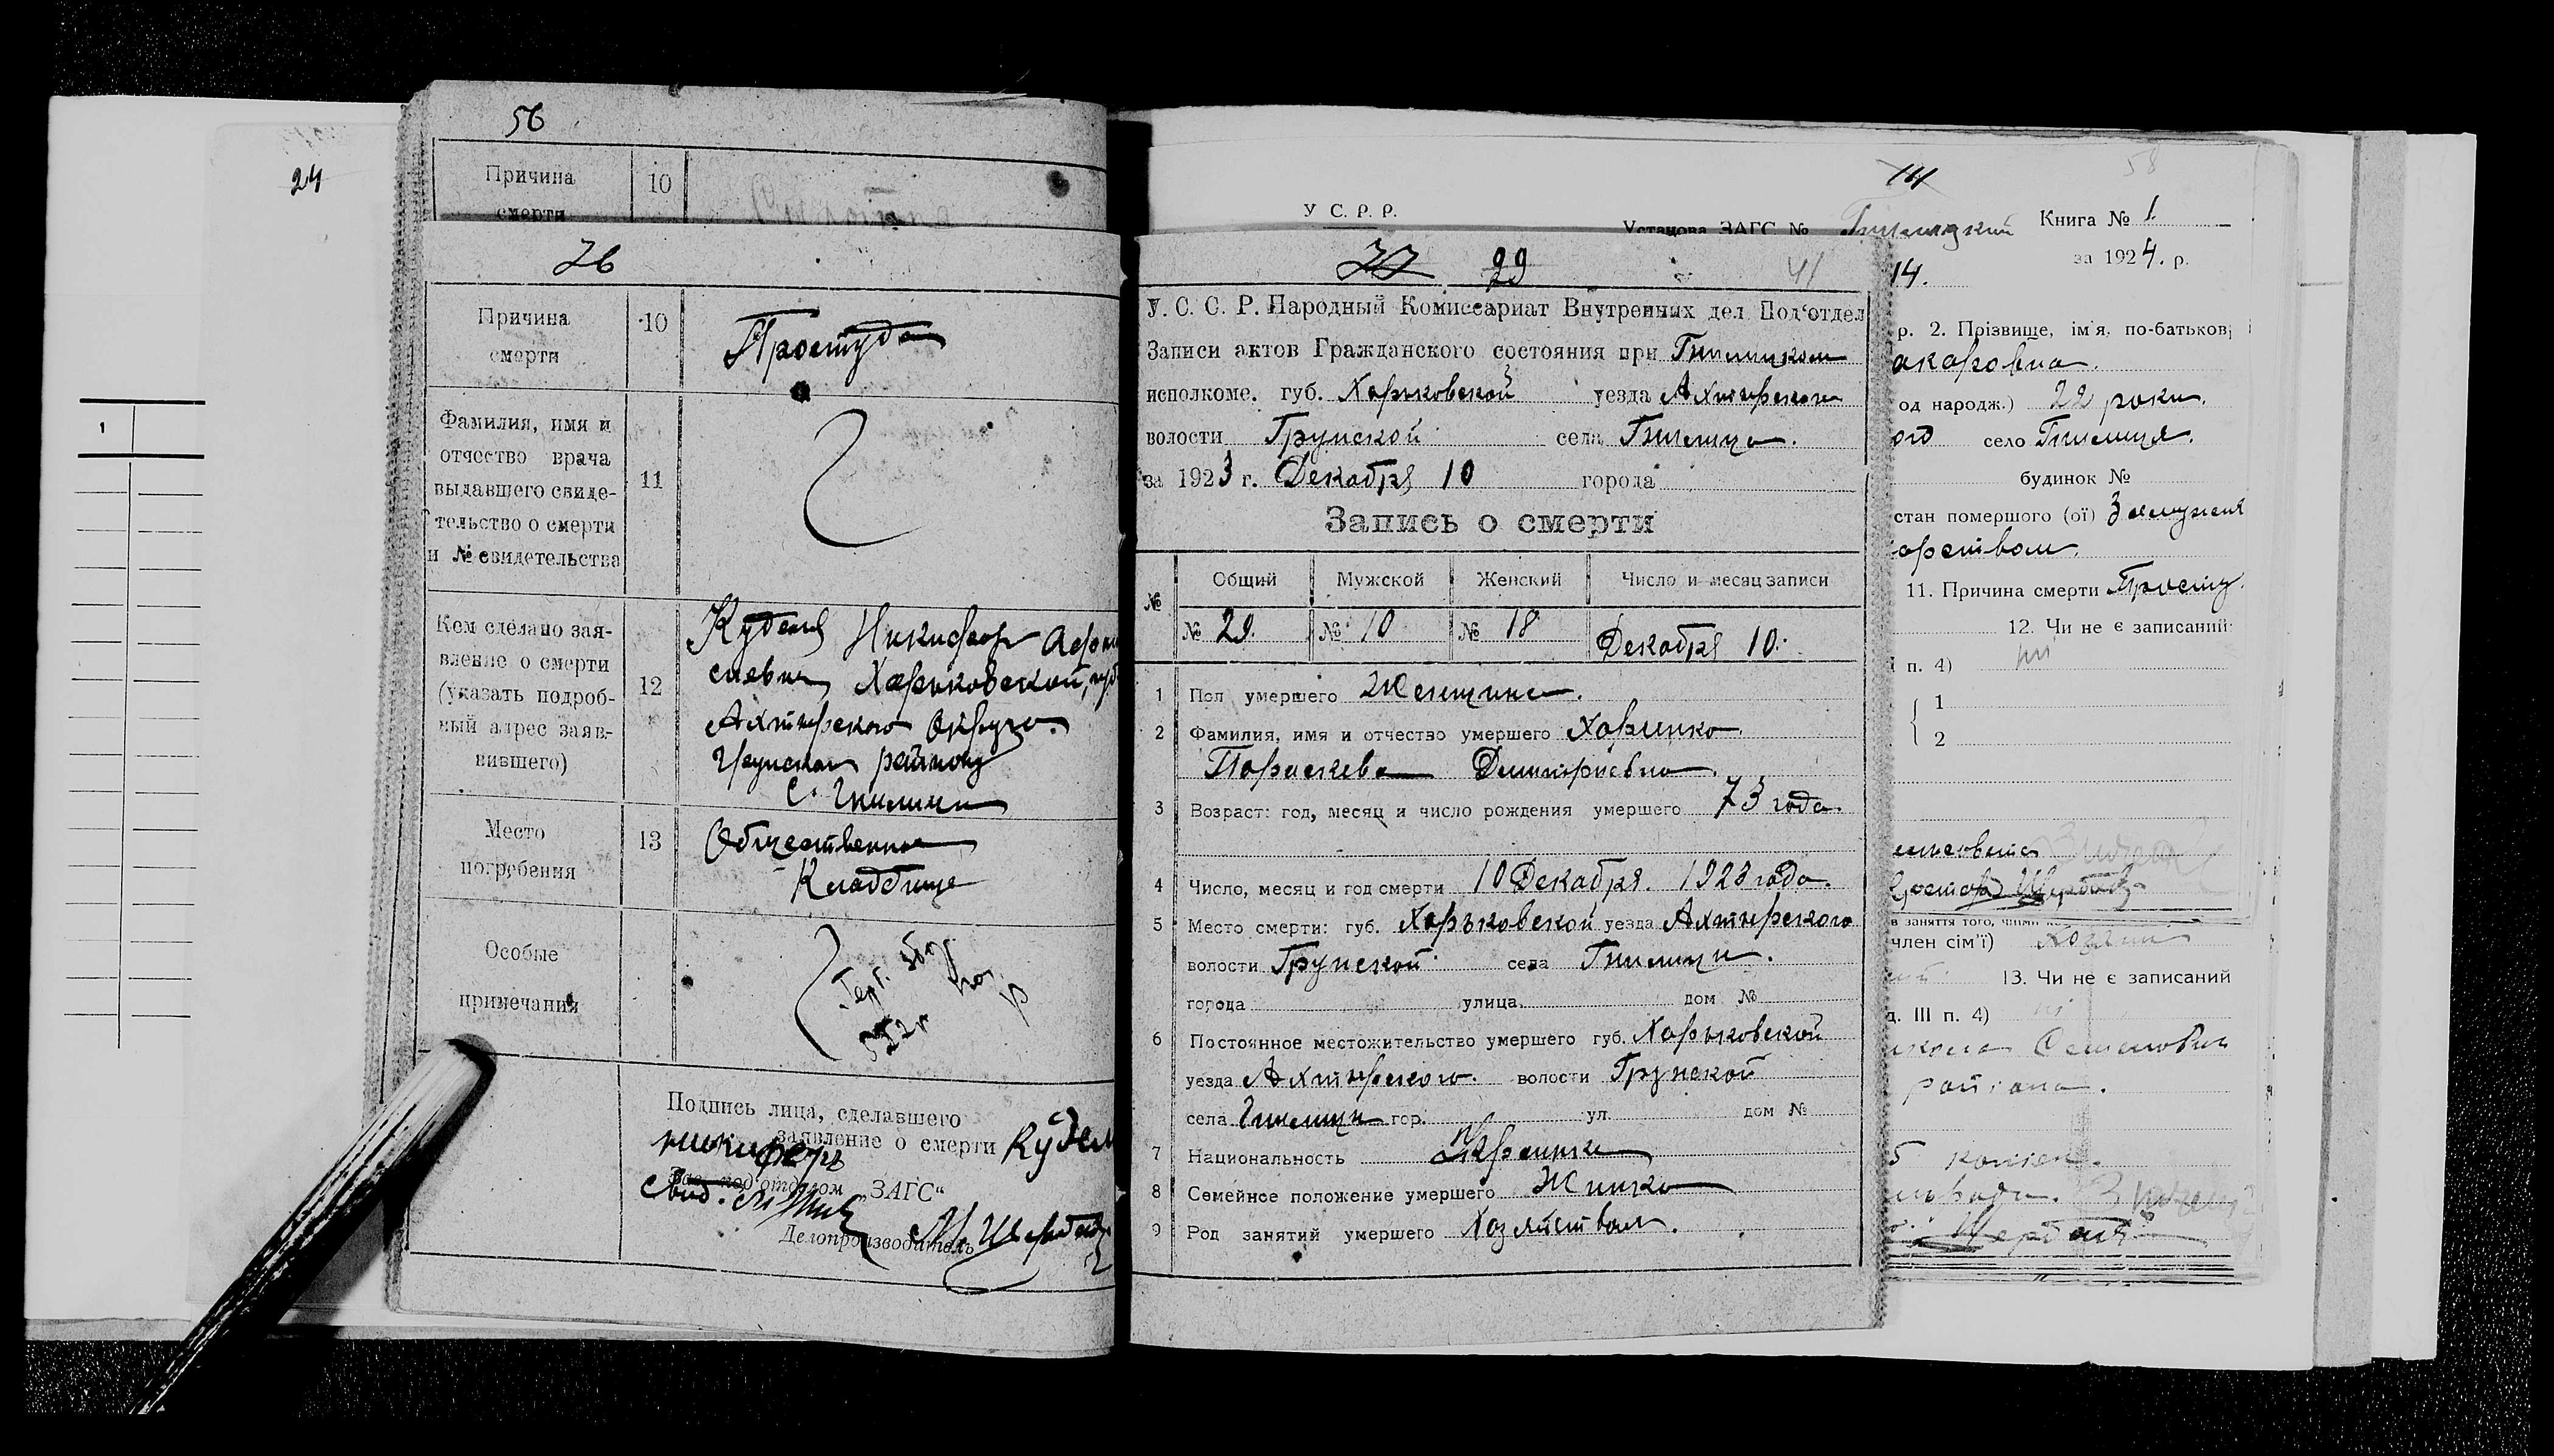 24
1
56
Причина
смерти
10
26
Причина
смерти
10
Простуда
Фамилия, имя и
отчество врача
выдавшего свиде-
тельство о смерти
и № свидетельства
11
Кем сделано зая-
вление о смерти
(указать подроб-
ный адрес заяв-
вившего)
12
Никифор
Харьковской, губ
Ахтырского Округа
района
с. Гнилици
Место
погребения
13
Общественное
Кладбище
Особые
примечания
Подпись лица, сделавшего
заявление о смерти
никифоръ
Зав. под‘отделом „ЗАГС“
Делопроизводитель
У С. Р. Р.
Установа ЗАГС №
Книга № 1
за 1924. р.
58
14.
27 29
41
У. С. С. Р. Народный Комиссариат Внутренних дел Под‘отдел
Записи актов Гражданского состояния при Гнилицком
исполкоме. губ. Харьковской уезда Ахтырского
волости Грунской села Гнилица.
за 1923 г. Декабря 10 города
Запись о смерти
№ Общий Мужской Женский Число и месяц записи
№ 29. № 10 № 18 Декабря 10.
1 Пол умершего Женщина.
2 Фамилия, имя и отчество умершего Харинко
Параскева Димитриевна.
3 Возраст: год, месяц и число рождения умершего 73 года.
4 Число, месяц и год смерти 10 Декабря. 1923 года.
5 Место смерти: губ. Харьковской уезда Ахтырского
волости Грунской села Гнилици.
города улица дом №
6 Постоянное местожительство умершего губ. Харьковской
уезда Ахтырского. волости Грунской
села Гнилици гор. ул. дом №
7 Национальность Украинка
8 Семейное положение умершего Жинка
9 Род занятий умершего Хозяйством.
р. 2. Прізвище, ім'я, по-батькові
акаровна.
од народж.) 22 роки.
село Гнилиця.
будинок №
стан помершого (ої) Замужня
арством.
11. Причина смерти Простуд
12. Чи не є записаний
п. 4) ні
1
2
в заняття того, чиїм
член сім'ї)
13. Чи не є записаний
д. III п. 4) ні
Семенович
района.
5 копіек.
Щербатй